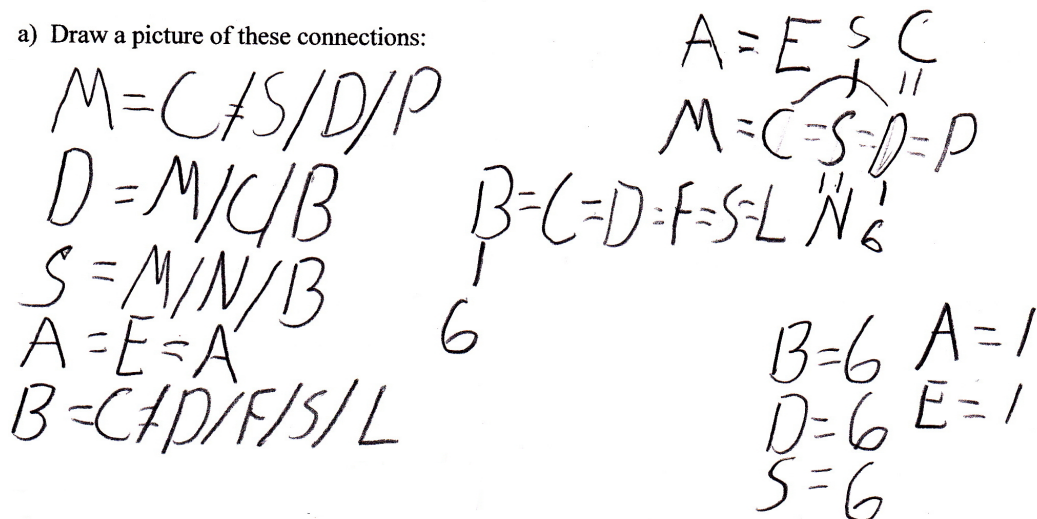 a) Draw a picture of these connections:
M=C≠S/D/P
D=M/C/B
S=M/N/B
A=E=A
B=C≠D/F/S/L
A=E S C
M=C=S=D=P
B=C=D=F=S=L N 6
6
B=6 A=1
D=6 E=1
S=6